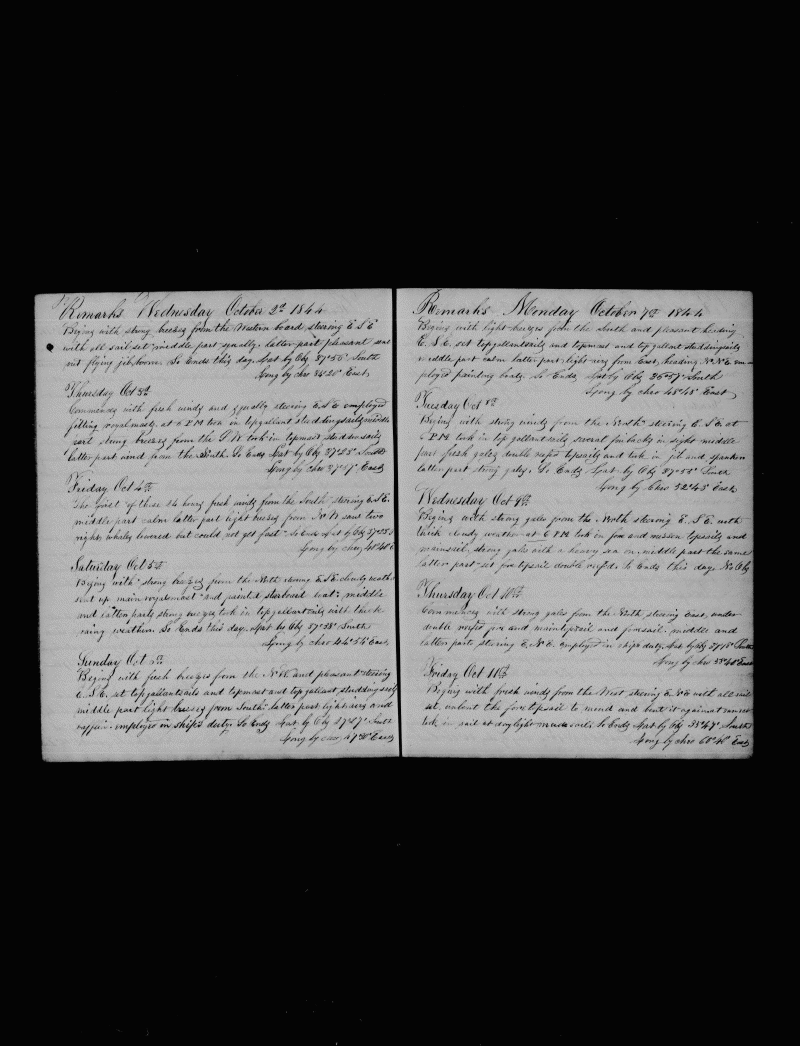 Remarks Wednesday October 2d 1844
Begins with strong breezes from the Western board steering E S E
with all sail set middle part squally. latter part pleasant sent
out flying jibboom. So Ends this day. Lat by Obs 37°56' South
Long by chro 34°26' East,
Thursday Oct 3d
Commences with fresh winds and squally steering E.S.E employed
fitting royalmasts, at 6 P.M took in topgallant studdingsails middle
part strong breezes from the S W took in topmast studdingsails
latter part wind from the South. So Ends Lat by Obs 37°25' South
Long by chro 37°17' East
Friday Oct 4th
The first of these 24 hours fresh winds from the South steering E.S.E.
middle part calm latter part light breezes from N W saw two
right whales lowered but could not get fast. So Ends Lat by Obs 37°25 S
Long by chro, 40°40 E
Saturday Oct 5th
Begins with strong breezes from the North steering E.S.E. cloudy weather
sent up main royalmast and painted starboard boat. middle
and latter parts strong breezes took in topgallantsails with thick
rainy weather. So Ends this day. Lat by Obs 37°38' South
Long by chro 44°54' East,
Sunday Oct 6th
Begins with fresh breezes from the N.W. and pleasant steering
E.S.E. set topgallantsails and topmast and topgallant studdingsails
middle part light breezes from South. latter part light airs and
employed in ships duty. So Ends Lat by Obs 37°07' South
Long by chro, 47°30' East
Remarks Monday October 7th 1844
Begins with light breezes from the South and pleasant heading
E.S.E. set topgallantsails and topmast and top gallant studdingsails
middle part calm latter part light airs from East, heading N.N.E em-
ployed painting boats. So Ends, Lat by Obs 36°57' South
Long by chro 48°45' East
Tuesday Oct 8th
Begins with strong winds from the North steering E.S.E at
6 P.M took in top gallantsails several finbacks in sight middle
part fresh gales double reefed topsails and took in jib and spanker
latter part strong gales. So Ends Lat by Obs 37°55' South
Long by Chro 52°45' East
Wednesday Oct 9th
Begins with strong gales from the North steering E.S.E. with
thick cloudy weather at 6 P.M took in fore and mizzen topsails and
mainsail, strong gales with a heavy sea on. middle part the same
latter part set fore topsail double reefed. So Ends this day. No Obs
Thursday Oct 10th
Commences with strong gales from the North steering East, under
double reefed fore and maintopsail and foresail. middle and
latter parts steering E.N.E. employed in ships duty. Lat by Obs 37°18' South
Long by chro 58°40' East
Friday Oct 11th
Begins with fresh winds from the West steering E.N.E with all sail
set. unbent the foretopsail to mend and bent it again at sunset
took in sail at daylight made sail. So Ends Lat by Obs 35°47' South
Long by chro 60°40' East,